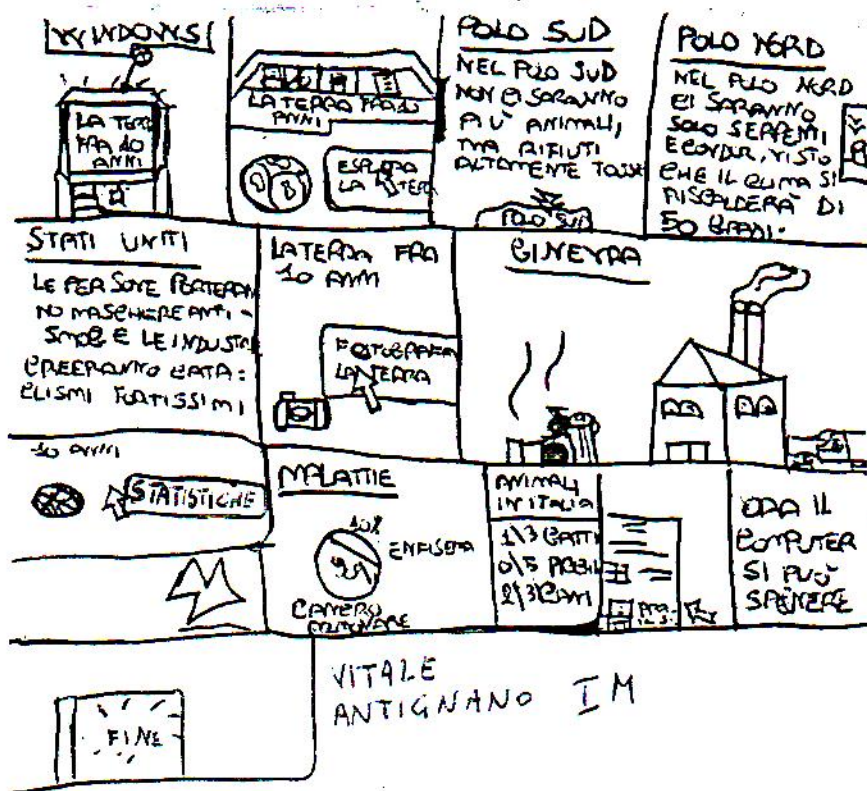 WINDOWS!
LA TERR
FRA 10
ANNI
LA TERRA FRA 10
ANNI
ESPLORA
LA TER
POLO SUD
NEL POLO SUD
NON CI SARANNO
PIÙ ANIMALI,
MA RIFIUTI
ALTAMENTE TOSSI
POLO SUD
POLO NORD
NEL POLO NORD
CI SARANNO
SOLO SERPENTI
E CONDOR, VISTO
CHE IL CLIMA SI
RISCALDERÀ DI
50 GRADI.
STATI UNITI
LE PERSONE PORTERAN
NO MASCHERE ANTI-
SMOG E LE INDUSTR
CREERANNO CATA-
CLISMI FORTISSIMI
LA TERRA FRA
10 ANNI
FOTOGRAFA
LA TERRA
GINEVRA
10 ANNI
STATISTICHE
MALATTIE
10%
ENFISEMA
CANCRO
POLMONARE
ANIMALI
IN ITALIA
1\3 GATTI
0\5
2\3 CANI
ORA IL
COMPUTER
SI PUÒ
SPENERE
FINE
VITALE
ANTIGNANO I M